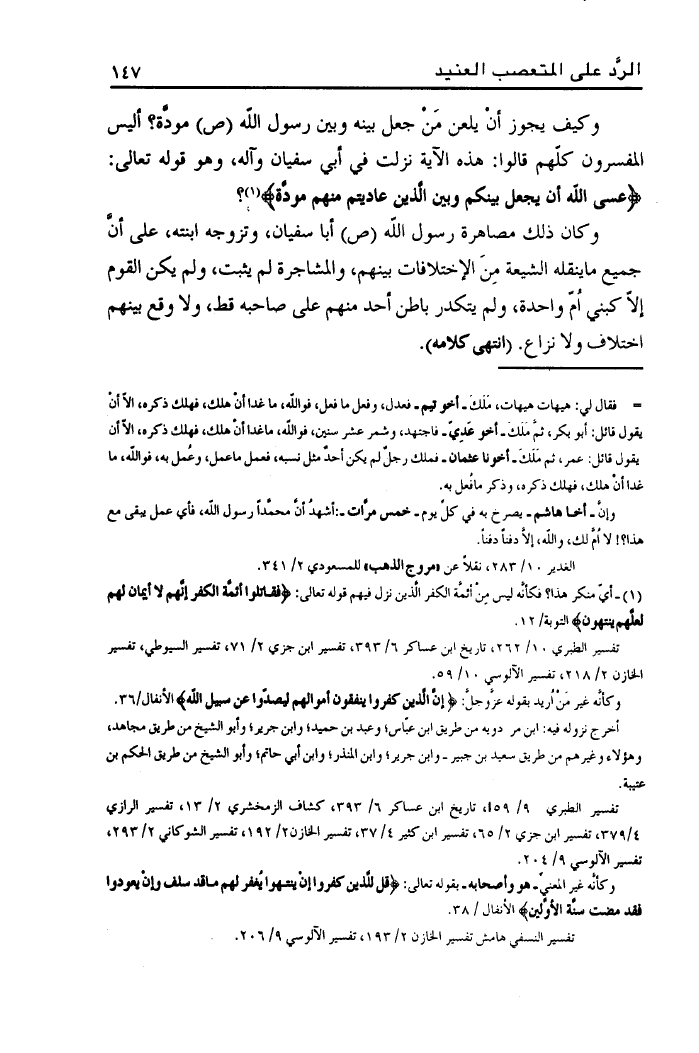 الردَّ على المتعصب العنيد ١٤٧
وكيف يجوز أنْ يلعن مَنْ جعل بينه وبين رسول اللّه (ص) مودَّة؟ أليس
المفسرون كلّهم قالوا: هذه الآية نزلت في أبي سفيان وآله، وهو قوله تعالى:
﴿عسى اللّه أن يجعل بينكم وبين الَّذين عاديتم منهم مودَّة﴾(١)؟
وكان ذلك مصاهرة رسول اللّه (ص) أبا سفيان، وتزوجه ابنته، على أنَّ
جميع ماينقله الشيعة مِنَ الإختلافات بينهم، والمشاجرة لم يثبت، ولم يكن القوم
إلاّ كبني أُمّ واحدة، ولم يتكدر باطن أحد منهم على صاحبه قط، ولا وقع بينهم
اختلاف ولا نزاع. (انتهى كلامه).
= فقال لي: هيهات هيهات، مَلَكَ ـ أخو تيم ـ فعدل، وفعل ما فعل، فواللّه، ما غدا أنْ هلك، فهلك ذكره، الاّ أنْ
يقول قائل: أبو بكر، ثمَّ مَلَكَ ـ أخو عَديّ ـ فاجتهد، وشمر عشر سنين، فواللّه، ماغدا أنْ هلك، فهلك ذكره، الاّ أن
يقول قائل: عمر، ثم مَلَكَ ـ أخونا عثمان ـ فملك رجلٌ لم يكن أحدٌ مثل نسبه، فعمل ماعمل، وعُمل به، فواللّه، ما
غدا أنْ هلك، فهلك ذكره، وذكر مافُعل به.
وإنَّ ـ أخا هاشم ـ يصرخ به في كلّ يوم ـ خمس مرَّات ـ: أشهدُ أنَّ محمَّداً رسول اللّه، فأي عمل يبقى مع
هذا؟! لا أُمَّ لك، واللّه، إلاَّ دفناً دفناً.
الغدير ١٠/ ٢٨٣، نقلاً عن «مروج الذهب» للمسعودي ٢/ ٣٤١.
(١) ـ أيّ منكر هذا؟ فكأنّه ليس مِنْ أئمَّة الكفر الَّذين نزل فيهم قوله تعالى: ﴿فقاتلوا أئمَّة الكفر إنَّهم لا أيمان لهم
لعلَّهم ينتهون﴾ التوبة/ ١٢.
تفسير الطبري ١٠/ ٢٦٢، تاريخ ابن عساكر ٦/ ٣٩٣، تفسير ابن جزي ٢/ ٧١، تفسير السيوطي، تفسير
الخازن ٢/ ٢١٨، تفسير الآلوسي ١٠/ ٥٩.
وكأنَّه غير مَنْ أُريد بقوله عزَّ وجلَّ: ﴿إنْ الَّذين كفروا ينفقون أموالهم ليصدّوا عن سبيل اللّه﴾ الأنفال/٣٦.
أخرج نزوله فيه: ابن مر دويه من طريق ابن عبَّاس؛ وعبد بن حميد؛ وابن جرير؛ وأبو الشيخ من طريق مجاهد،
وهؤلاء وغيرهم من طريق سعيد بن جبير ـ وابن جرير؛ وابن المنذر؛ وابن أبي حاتم؛ وأبو الشيخ من طريق الحكم بن
عتيبة.
تفسير الطبري ٩/ ١٥٩، تاريخ ابن عساكر ٦/ ٣٩٣، كشاف الزمخشري ٢/ ١٣، تفسير الرازي
٤/٣٧٩، تفسير ابن جزي ٢/ ٦٥، تفسير ابن كثير ٤/ ٣٧، تفسير الخازن٢/ ١٩٢، تفسير الشوكاني ٢/ ٢٩٣،
تفسير الآلوسي ٩/ ٢٠٤.
وكأنَّه غير المعنيّ ـ هو وأصحابه ـ بقوله تعالى: ﴿قل للَّذين كفروا إنْ ينتهوا يُغفر لهم ماقد سلف وإنْ يعودوا
فقد مضت سنَّة الأوَّلين﴾ الأنفال / ٣٨.
تفسير النسفي هامش تفسير الخازن ٢/ ١٩٣، تفسير الآلوسي ٩/ ٢٠٦.